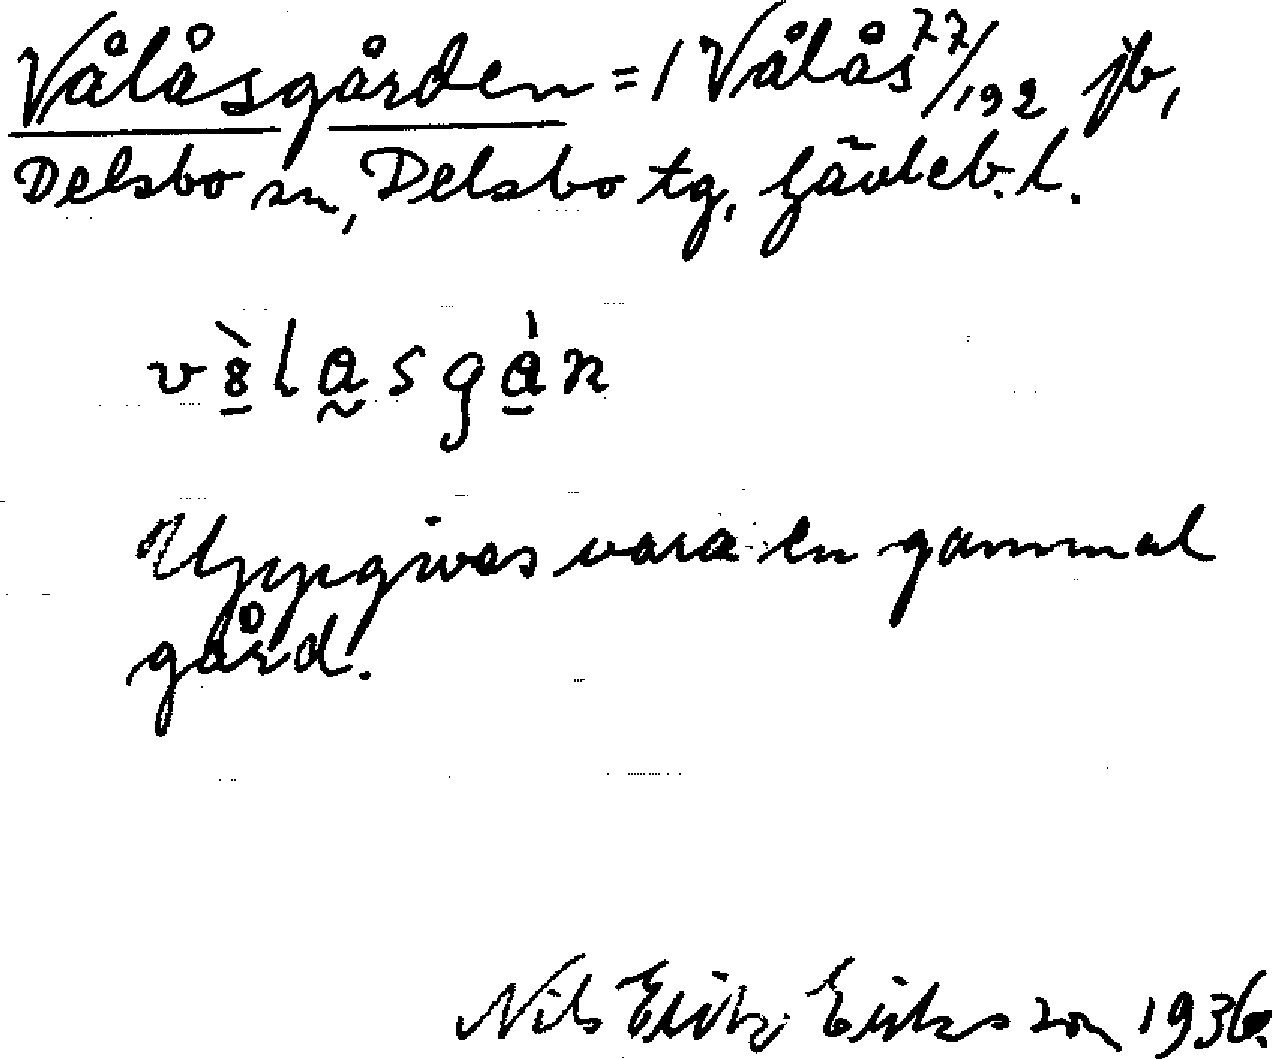 Vålåsgården = 1 Vålås 77/192 jb,
Delsbo sn, Delsbo tg, Gävleb. l.
v8̀lasgàn
Uppgives vara en gammal
gård.
Nils Erik Eriksson 1936.